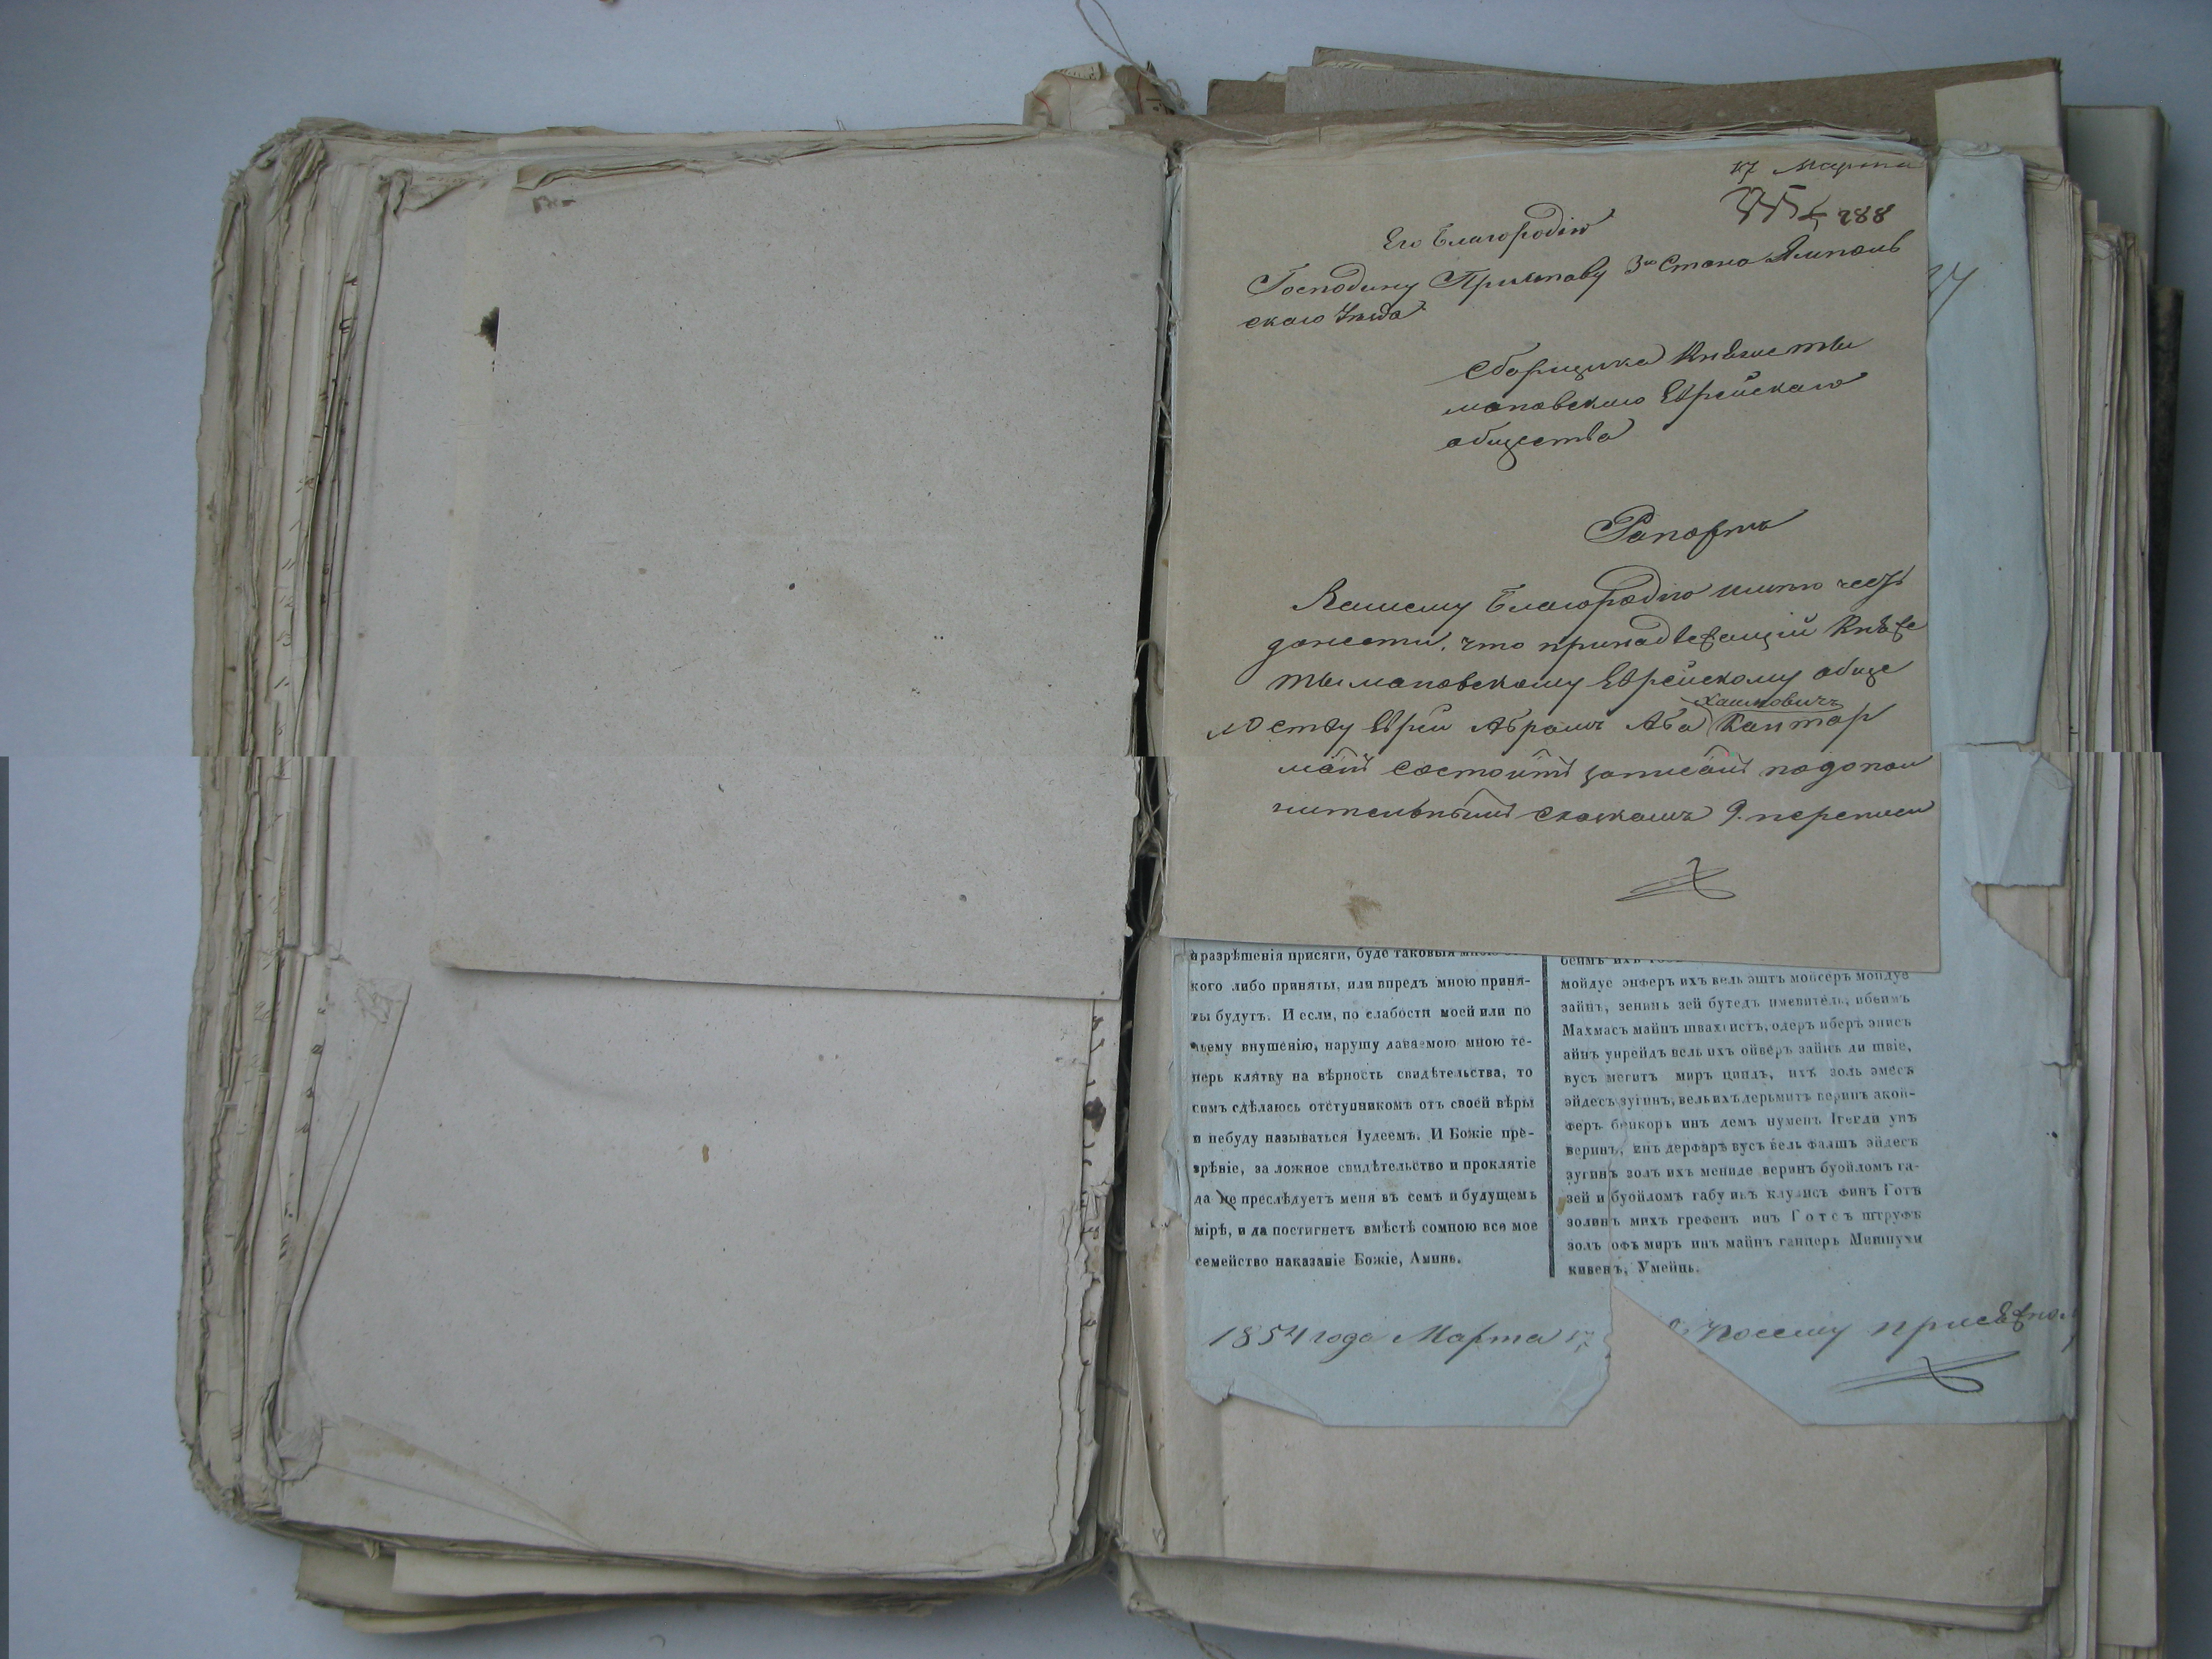 17 Марта
288
Его Благородію
Господину Приставу 3го Стана Ямполь
скаго Уѣзда
Сборщика Княже ты
маповскаго Еврейскаго
общества
Рапортъ
Вашему Благородію имѣю честь
донести, что принадлежащій Княже
тымаповскому Еврейскому обще
ству Еврей Абрамъ Аба Кантор
Хаимовичъ
манъ состоитъ записанъ подопол
нительнымъ сказкамъ 9. переписи
разрѣшенія присяги, буде таковыя
кого либо приняты, или впредъ мною приня-
ты будутъ. И если, по слабости моей или по
чьему внушенію, нарушу даваемою мною те-
перь клятву на вѣрность свидѣтельства, то
симъ сдѣлаюсь отступникомъ отъ своей вѣры
и небуду называться Іудеемъ. И Божіе пре-
зрѣніе, за ложное свидѣтельство и проклятіе
да не преслѣдуетъ меня въ семъ и будущемъ
мірѣ, и да постигнетъ вмѣстѣ сомною все мое
семейство наказаніе Божіе, Аминь.
мойдуе энферъ ихъ вель эштъ мойсеръ мойдуе
зайнъ, зенинь зей бутедъ именитель, ибеимъ
Махмасъ майнъ швахистъ, одеръ иберъ энисъ
айнъ унрейдъ вель ихъ ойверъ зайнъ ди швіе,
вусъ мегитъ миръ циндъ, ихъ золь эмесъ
эйдесъ зугинъ, вель ихъ дерьмитъ веринъ акой-
феръ бейкоръ инъ демъ нуменъ Іегеди унъ
веринъ, инъ дерфаръ вусъ вель фалшъ эйдесъ
зугинъ золъ ихъ мениде веринъ буойломъ га-
зей и буойломъ габу инъ клулисъ финъ Готъ
золинъ михъ грефенъ инъ Готсъ штруфъ
золъ офъ миръ инъ майнъ ганцеръ Мишпухи
кивенъ, Умейнь.
1854 года Марта 17
посему присяжно